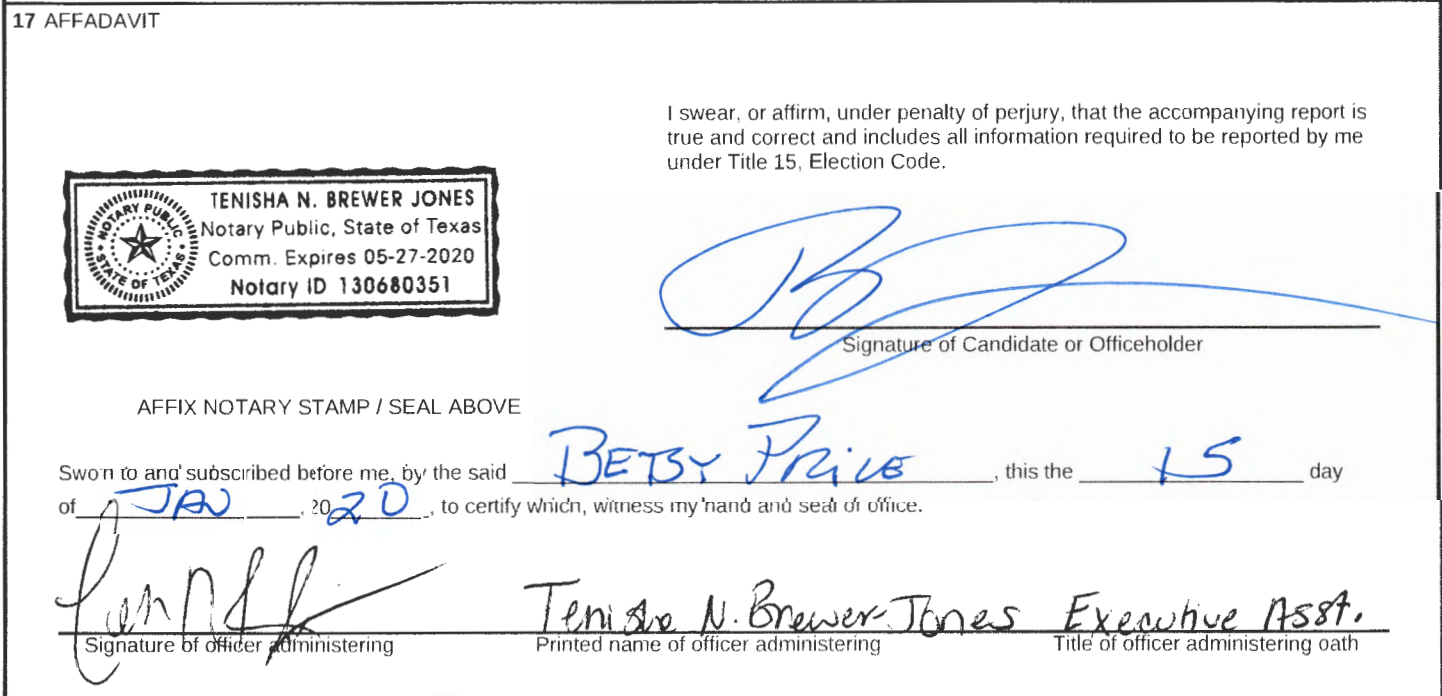 17 AFFADAVIT
I swear, or affirm, under penalty of perjury, that the accompanying report is
true and correct and includes all information required to be reported by me
under Title 15, Election Code.
TENISHA N. BREWER JONES
Notary Public, State of Texas
Comm. Expires 05-27-2020
Notary ID 130680351
NOTARY PUBLIC
STATE OF TEXAS
Signature of Candidate or Officeholder
AFFIX NOTARY STAMP / SEAL ABOVE
Sworn to and subscribed before me, by the said BETSY PRICE, this the 15 day
of JAN, 2020, to certify which, witness my hand and seal of office.
Tenisha N. Brewer-Jones Executive Asst.
Signature of officer administering Printed name of officer administering Title of officer administering oath